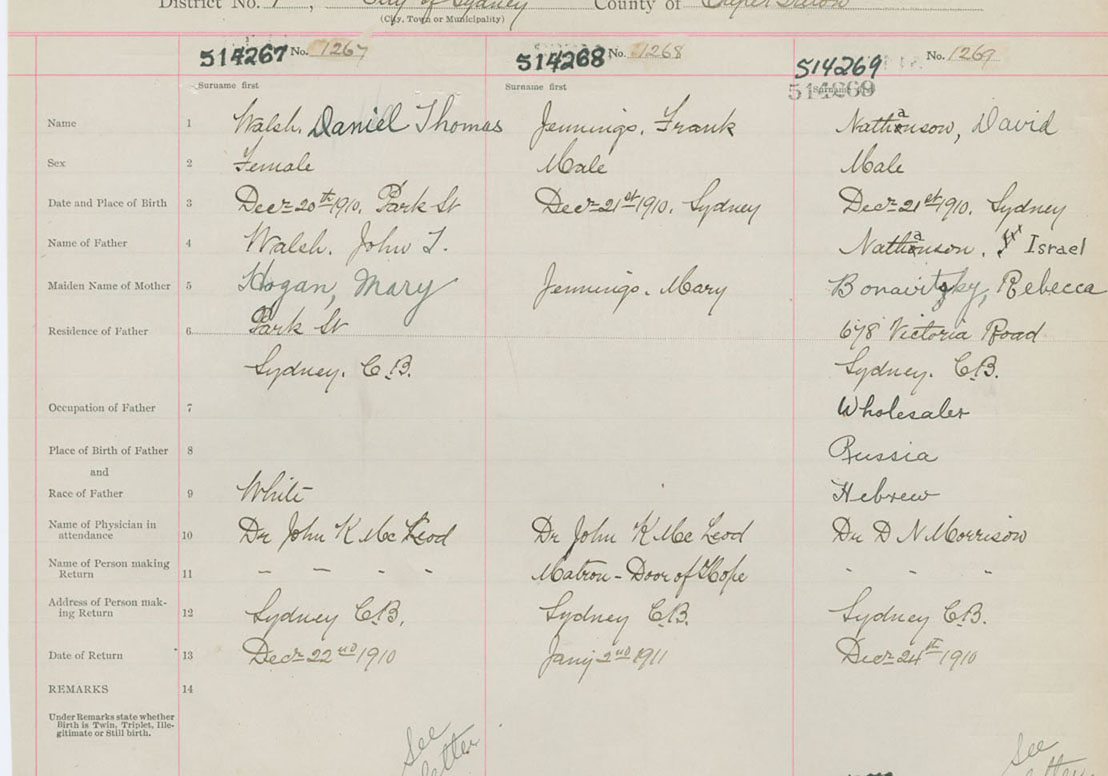 District No. 1, City of Sydney County of Cape Breton
(City, Town or Municipality)
514267 No. 1267 514268 No. 1268 514269 No. 1269
Surname first Surname first 514269 Surname first
Name 1 Walsh, Daniel Thomas Jennings, Frank Nathanson, David
Sex 2 Female Male Male
Date and Place of Birth 3 Decr 20th 1910, Park St Decr 21st 1910, Sydney Decr 21st 1910, Sydney
Name of Father 4 Walsh, John T. Nathanson, Israel
Maiden Name of Mother 5 Hogan, Mary Jennings, Mary Bonavitzky, Rebecca
Residence of Father 6 Park St 678 Victoria Road
Sydney. C.B. Sydney. C.B.
Occupation of Father 7 Wholesaler
Place of Birth of Father 8 Russia
and
Race of Father 9 White Hebrew
Name of Physician in attendance 10 Dr John K McLeod Dr John K McLeod Dr D N Morrison
Name of Person making Return 11 – – - - Matron - Door of Hope - - -
Address of Person making Return 12 Sydney C.B. Sydney C.B. Sydney C.B.
Date of Return 13 Decr 22nd 1910 Jany 2nd 1911 Decr 24th 1910
REMARKS 14
Under Remarks state whether
Birth is Twin, Triplet, Ille-
gitimate or Still birth.
See See
letter letter